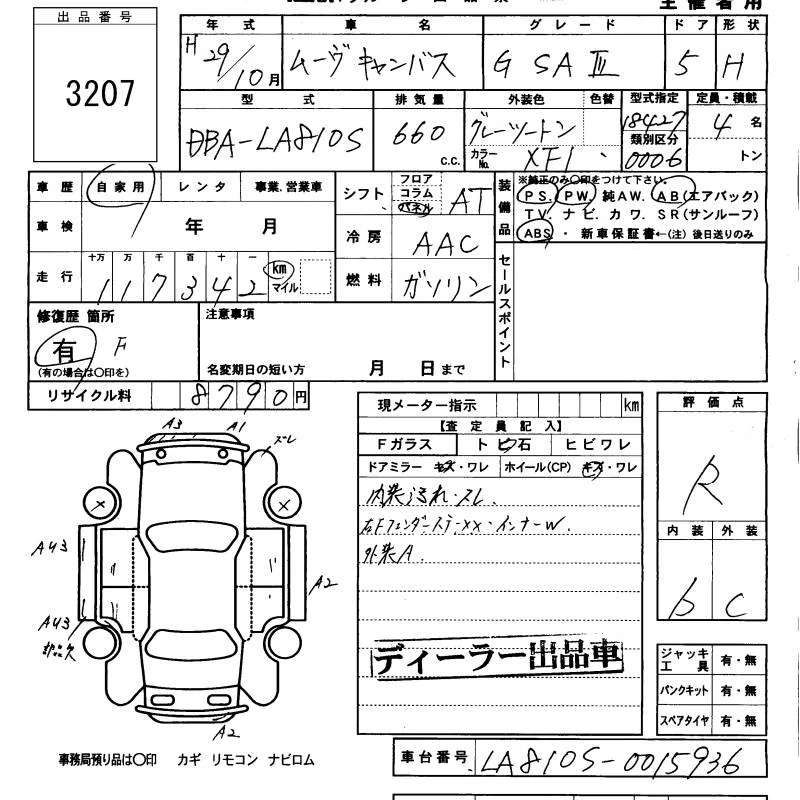 出品番号
3207
年式 車名 グレード ドア 形状
H 29/10月 ムーヴ キャンバス G SA Ⅲ 5 H
型式 排気量 外装色 色替 型式指定 定員・積載
DBA-LA810S 660 c.c. グレーツートン 18427 4名
カラーNo. XF1 類別区分 0006 トン
車歴 自家用 レンタ 事業.営業車
車検 年 月
走行 十万 万 千 百 十 一
117342 km マイル
シフト フロア コラム パネル AT
冷房 AAC
燃料 ガソリン
装備品
※純正のみ〇印をつけて下さい。
PS. PW. 純AW. AB(エアバック)
TV. ナビ. カワ. SR(サンルーフ)
ABS・新車保証書←(注)後日送りのみ
セールスポイント
修復歴 箇所
有 F
(有の場合は〇印を)
注意事項
名変期日の短い方 月 日まで
リサイクル料 8790円
現メーター指示 km
【査定員記入】
Fガラス トビ石 ヒビワレ
ドアミラー キズ・ワレ ホイール(CP) キズ・ワレ
内装汚れ・スレ.
右Fフェンダーステーxx・インナーW.
外装A.
ディーラー出品車
評価点
R
内装 外装
b C
ジャッキ工具 有・無
パンクキット 有・無
スペアタイヤ 有・無
A3 A1
ズレ
AU3
A2
AU3
欠
A2
事務局預り品は〇印 カギ リモコン ナビロム
車台番号 LA810S-0015936